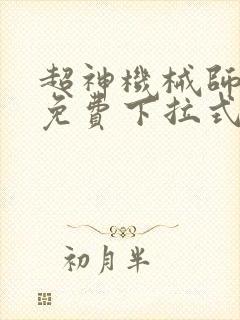 超神機械師
免費下拉式
初月半